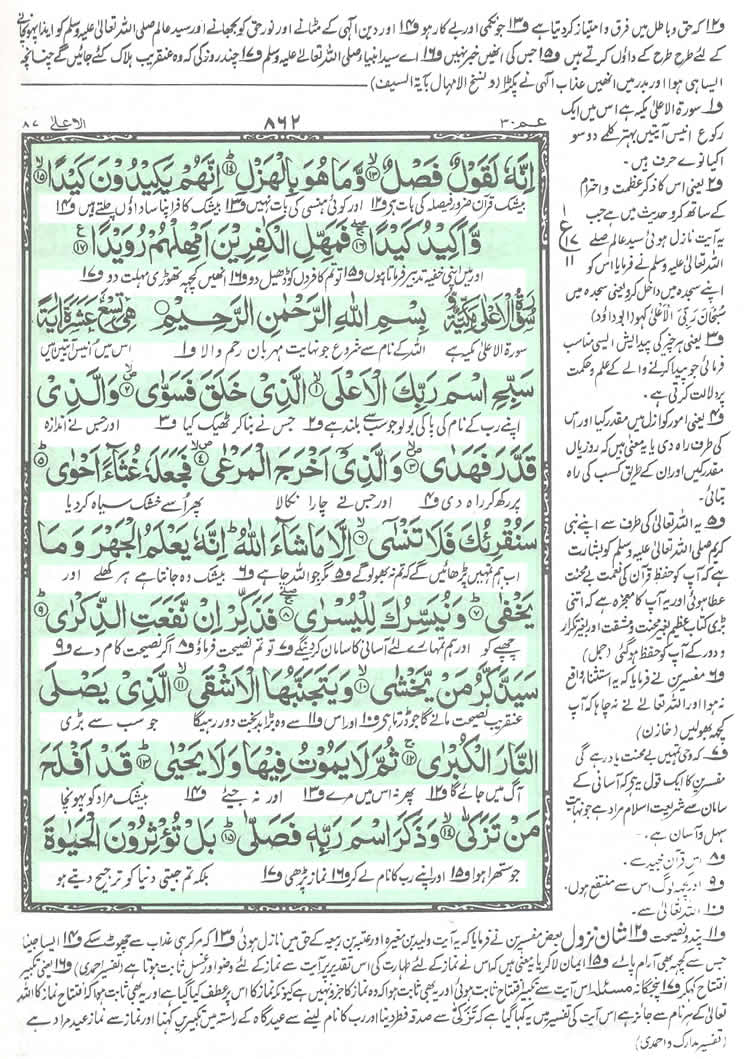 و۱۲ کہ حق و باطل میں فرق و امتیاز کر دیتا ہے و۱۳ جو نکمی اور بے کار ہو و۱۴ اور دین الٰہی کے مٹانے اور نور حق کو بجھانے اور سید عالم صلی اللہ تعالٰی علیہ وسلم کو ایذا پہونچانے
کے لئے طرح طرح کے داؤں کرتے ہیں و۱۵ جس کی انھیں خبر نہیں و۱۶ اے سید انبیاء صلی اللہ تعالٰی علیہ وسلم و۱۷ چند روز کی کہ وہ عنقریب ہلاک کئے جائیں گے چنانچہ
ایسا ہی ہوا اور بدر میں انھیں عذاب الٰہی نے پکڑا (ونسخ الامهال بآية السيف)
عمّ ۳۰
۸۶۲
الاعلیٰ ۸۷
اِنَّهٗ لَقَوْلٌ فَصْلٌ ۙ۱۳ وَّمَا هُوَ بِالْهَزْلِ ؕ۱۴ اِنَّهُمْ يَكِيْدُوْنَ كَيْدًا ۙ۱۵
بیشک قرآن ضرور فیصلہ کی بات ہے و۱۲ اور کوئی ہنسی کی بات نہیں و۱۳ بیشک کافر اپنا سا داؤں چلتے ہیں و۱۴
وَّاَكِيْدُ كَيْدًا ۚۖ۱۶ فَمَهِّلِ الْكٰفِرِيْنَ اَمْهِلْهُمْ رُوَيْدًا ۱۷
اور میں اپنی خفیہ تدبیر فرماتا ہوں و۱۵ تو تم کافروں کو ڈھیل دو و۱۶ انھیں کچھ تھوڑی مہلت دو و۱۷
سُوْرَةُ الْاَعْلٰى مَكِّيَّةٌ وَّ بِسْمِ اللّٰهِ الرَّحْمٰنِ الرَّحِيْمِ هِيَ تِسْعَ عَشْرَةَ اٰيَةً
سورۃ الاعلیٰ مکیہ ہے اللہ کے نام سے شروع جو نہایت مہربان رحم والا و۱ اس میں انیس آیتیں ہیں
سَبِّحِ اسْمَ رَبِّكَ الْاَعْلَى ۙ۱ الَّذِيْ خَلَقَ فَسَوّٰى ۪ۙ۲ وَالَّذِيْ
اپنے رب کے نام کی پاکی بولو جو سب سے بلند ہے و۲ جس نے بنا کر ٹھیک کیا و۳ اور جس نے اندازہ
قَدَّرَ فَهَدٰى ۪ۙ۳ وَالَّذِيْۤ اَخْرَجَ الْمَرْعٰى ۪ۙ۴ فَجَعَلَهٗ غُثَآءً اَحْوٰى ؕ۵
پر رکھ کر راہ دی و۴ اور جس نے چارا نکالا پھر اُسے خشک سیاہ کر دیا
سَنُقْرِئُكَ فَلَا تَنْسٰۤى ۙ۶ اِلَّا مَا شَآءَ اللّٰهُ ؕ اِنَّهٗ يَعْلَمُ الْجَهْرَ وَمَا
اب ہم تمہیں پڑھائیں گے کہ تم نہ بھولو گے و۵ مگر جو اللہ چاہے و۶ بیشک وہ جانتا ہے ہر کھلے اور
يَخْفٰى ؕ۷ وَنُيَسِّرُكَ لِلْيُسْرٰى ۚۖ۸ فَذَكِّرْ اِنْ نَّفَعَتِ الذِّكْرٰى ؕ۹
چھپے کو اور ہم تمہارے لئے آسانی کا سامان کر دینگے و۷ تو تم نصیحت فرماؤ و۸ اگر نصیحت کام دے و۹
سَيَذَّكَّرُ مَنْ يَّخْشٰى ۙ۱۰ وَيَتَجَنَّبُهَا الْاَشْقَى ۙ۱۱ الَّذِيْ يَصْلَى
عنقریب نصیحت مانے گا جو ڈرتا ہے و۱۰ اور اس و۱۱ سے وہ بڑا بدبخت دور رہیگا جو سب سے بڑی
النَّارَ الْكُبْرٰى ۚ۱۲ ثُمَّ لَا يَمُوْتُ فِيْهَا وَلَا يَحْيٰى ؕ۱۳ قَدْ اَفْلَحَ
آگ میں جائے گا و۱۲ پھر نہ اس میں مرے و۱۳ اور نہ جئے و۱۴ بیشک مراد کو پہونچا
مَنْ تَزَكّٰى ۙ۱۴ وَذَكَرَ اسْمَ رَبِّهٖ فَصَلّٰى ؕ۱۵ بَلْ تُؤْثِرُوْنَ الْحَيٰوةَ
جو ستھرا ہوا و۱۵ اور اپنے رب کا نام لے کر و۱۶ نماز پڑھی و۱۷ بلکہ تم جیتی دنیا کو ترجیح دیتے ہو
ع
۱
۱۷
۱۱
و۱ سورۃ الاعلیٰ مکیہ ہے اس میں ایک
رکوع انیس آیتیں بہتر کلمے دو سو
اکیانوے حرف ہیں۔
و۲ یعنی اس کا ذکر عظمت و احترام
کے ساتھ کرو حدیث میں ہے جب
یہ آیت نازل ہوئی سید عالم صلی
اللہ تعالٰی علیہ وسلم نے فرمایا اس کو
اپنے سجدہ میں داخل کرو یعنی سجدہ میں
سُبْحَانَ رَبِّيَ الْاَعْلٰى کہو (ابو داؤد)
و۳ یعنی ہر چیز کی پیدائش ایسی مناسب
فرمائی جو پیدا کرنے والے کے علم و حکمت
پر دلالت کرتی ہے۔
و۴ یعنی امور کو ازل میں مقدر کیا اور اس
کی طرف راہ دی یا یہ معنی ہیں کہ روزیاں
مقدر کیں اور ان کے طریق کسب کی راہ
بتائی۔
و۵ یہ اللہ تعالٰی کی طرف سے اپنے نبی
کریم صلی اللہ تعالٰی علیہ وسلم کو بشارت
ہے کہ آپ کو حفظ قرآن کی نعمت بے محنت
عطا ہوئی اور یہ آپ کا معجزہ ہے کہ اتنی
بڑی کتاب عظیم بغیر محنت و مشقت اور بغیر تکرار
و دور کے آپ کو حفظ ہو گئی (جمل)
و۶ مفسرین نے فرمایا کہ یہ استثنا واقع
نہ ہوا اور اللہ تعالٰی نے نہ چاہا کہ آپ
کچھ بھولیں (خازن)
و۷ کہ وحی تمہیں بے محنت یاد رہے گی
مفسرین کا ایک قول یہ ہے کہ آسانی کے
سامان سے شریعت اسلام مراد ہے جو نہایت
سہل و آسان ہے۔
و۸ اس قرآن مجید سے۔
و۹ اور کچھ لوگ اس سے منتفع ہوں۔
و۱۰ اللہ تعالٰی سے۔
و۱۱ پند و نصیحت و۱۲ شان نزول بعض مفسرین نے فرمایا کہ یہ آیت ولید بن مغیرہ اور عتبہ بن ربیعہ کے حق میں نازل ہوئی و۱۳ کہ مر کر ہی عذاب سے چھوٹ سکے و۱۴ ایسا جینا
جس سے کچھ بھی آرام پائے و۱۵ ایمان لا کر یا یہ معنی ہیں کہ اس نے نماز کے لئے طہارت کی اس تقدیر پر آیت سے نماز کے لئے وضو اور غسل ثابت ہوتا ہے (تفسیر احمدی) و۱۶ یعنی تکبیر
افتتاح کہہ کر و۱۷ پنجگانہ مسئلہ اس آیت سے تکبیر افتتاح ثابت ہوئی اور یہ بھی ثابت ہوا کہ وہ نماز کا جزو نہیں ہے کیونکہ نماز کا اس پر عطف کیا گیا ہے اور یہ بھی ثابت ہوا کہ افتتاح نماز کا اللہ
تعالٰی کے ہر نام سے جائز ہے اس آیت کی تفسیر میں یہ کہا گیا ہے کہ تَزَكّٰى سے صدقہ فطر دینا اور رب کا نام لینے سے عید گاہ کے راستہ میں تکبیریں کہنا اور نماز سے نماز عید مراد ہے
(تفسیر مدارک و احمدی)